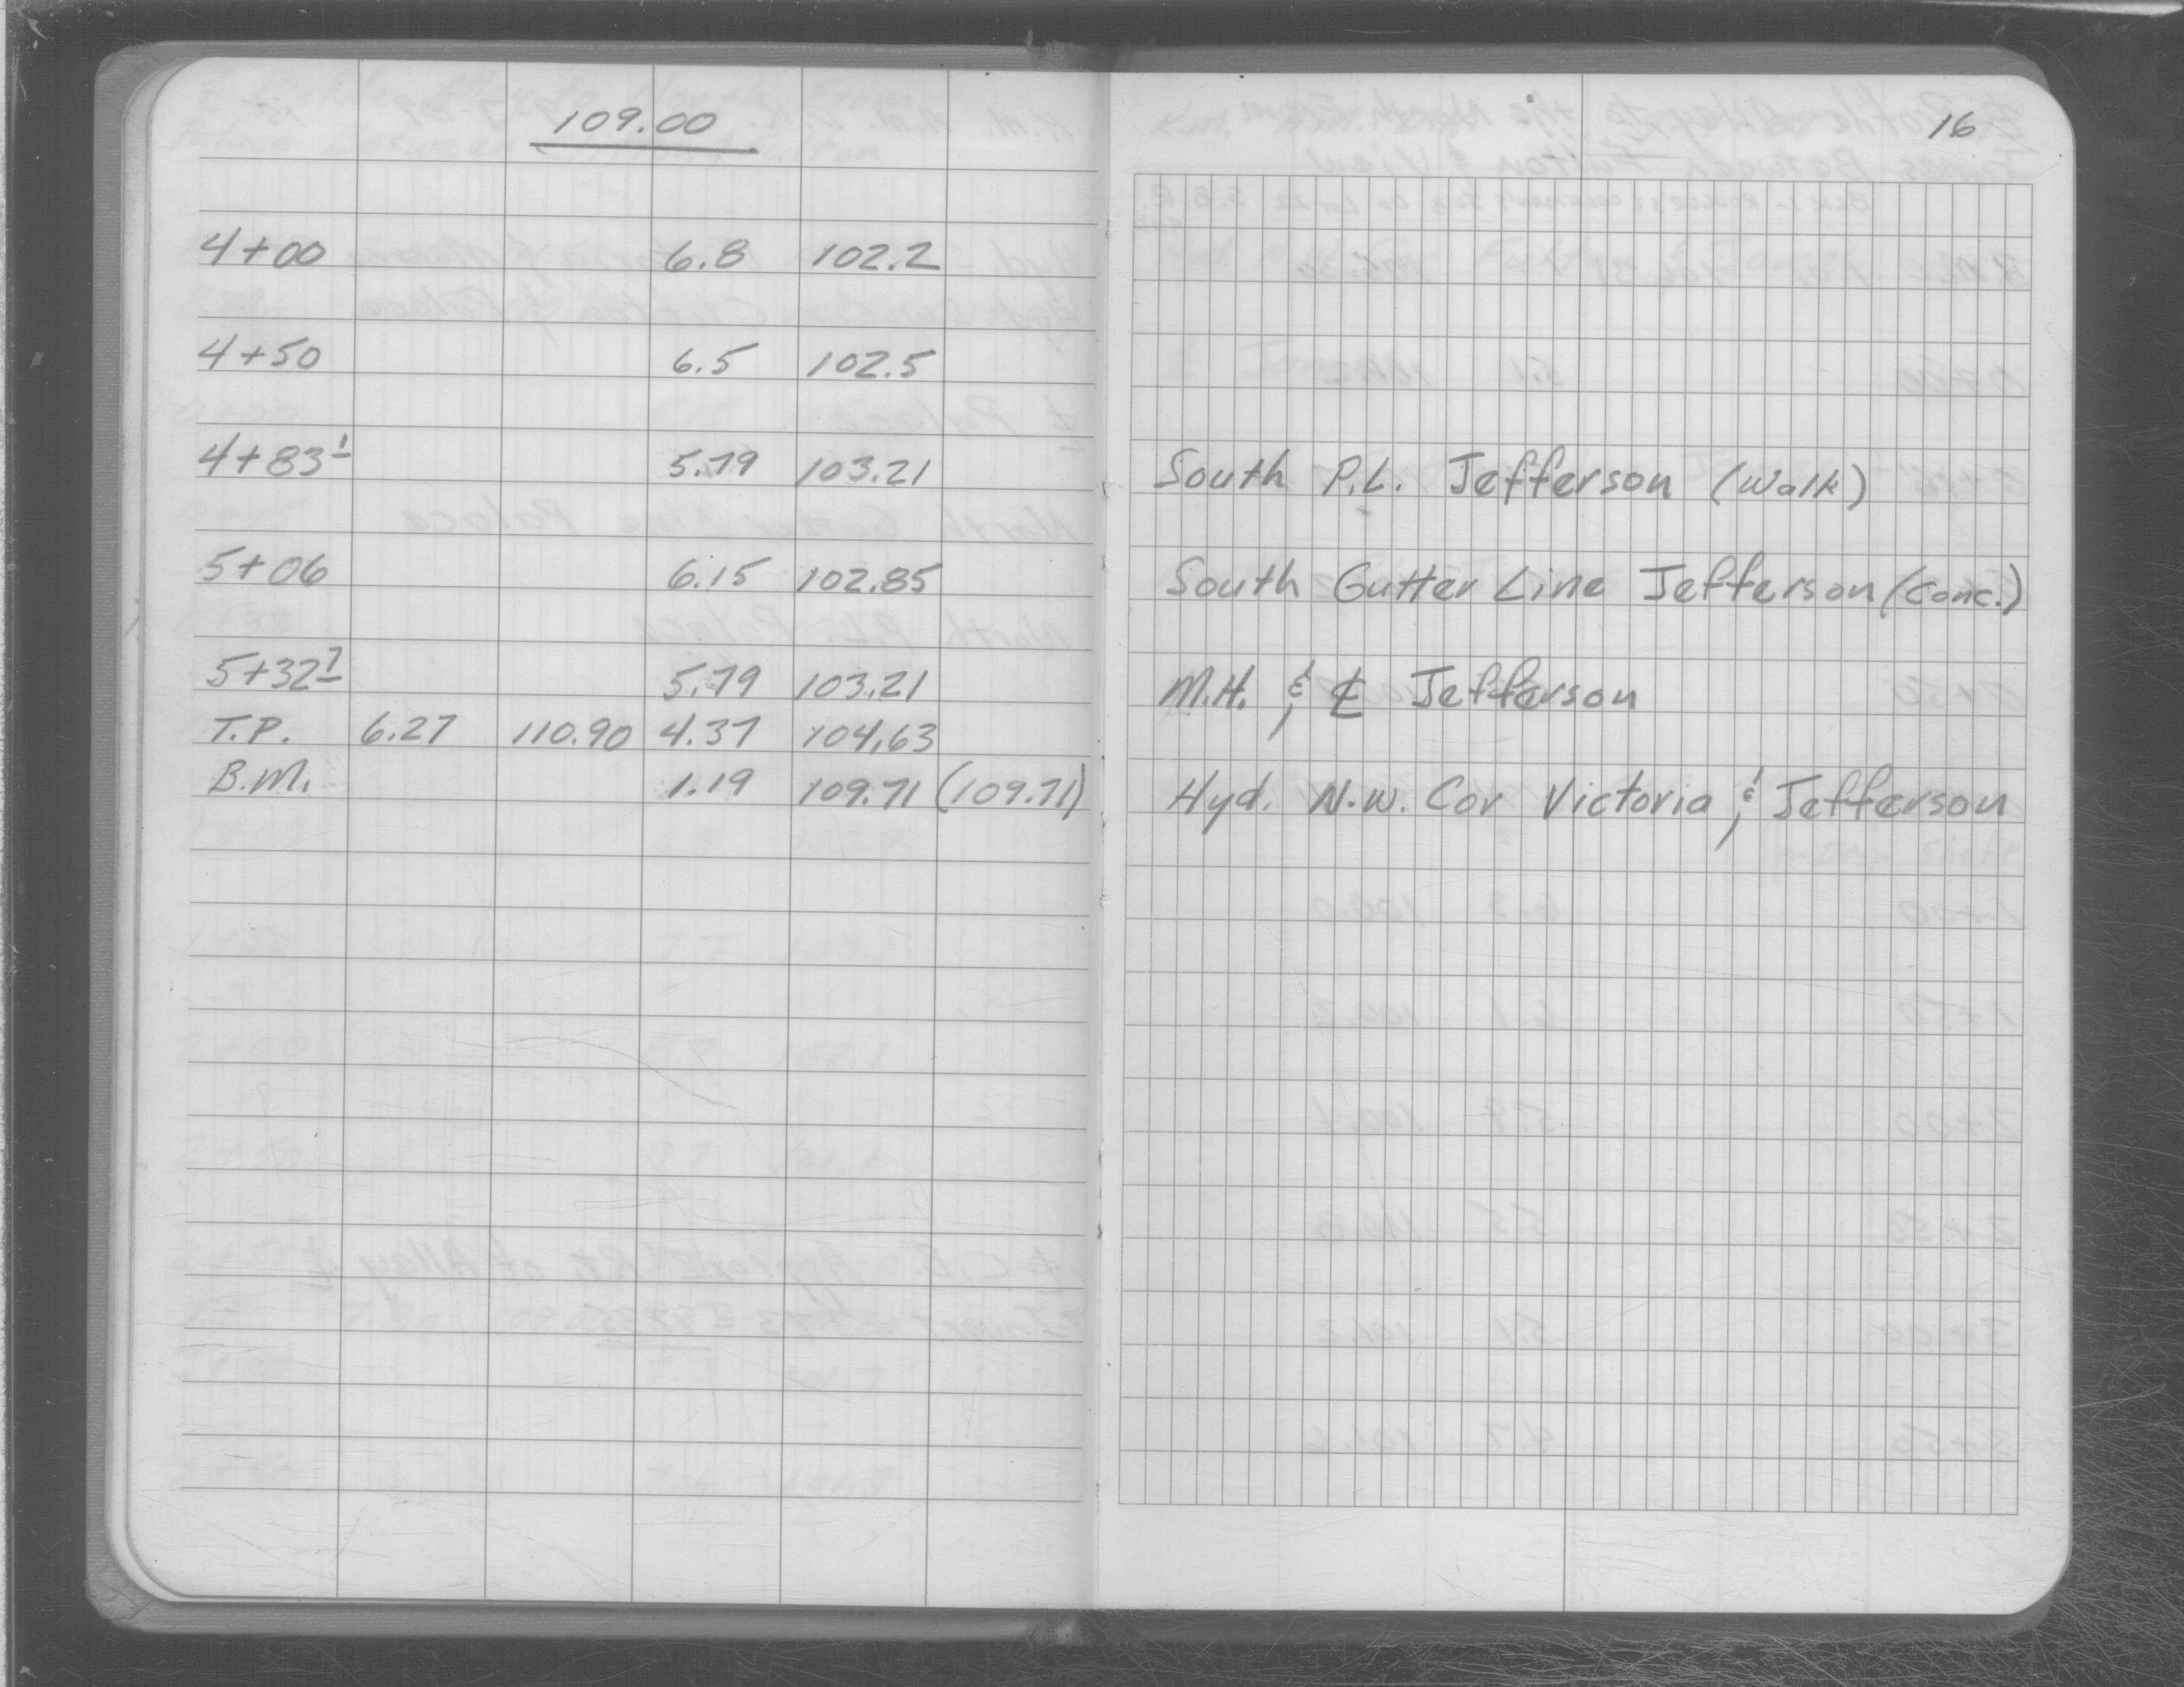 109.00
16
4+00 6.8 102.2
4+50 6.5 102.5
4+83¹ 5.79 103.21 South P.L. Jefferson (Walk)
5+06 6.15 102.85 South Gutter Line Jefferson (Conc.)
5+32⁷ 5.79 103.21 M.H. & ℄ Jefferson
T.P. 6.27 110.90 4.37 104.63
B.M. 1.19 109.71 (109.71) Hyd. N.W. Cor Victoria & Jefferson